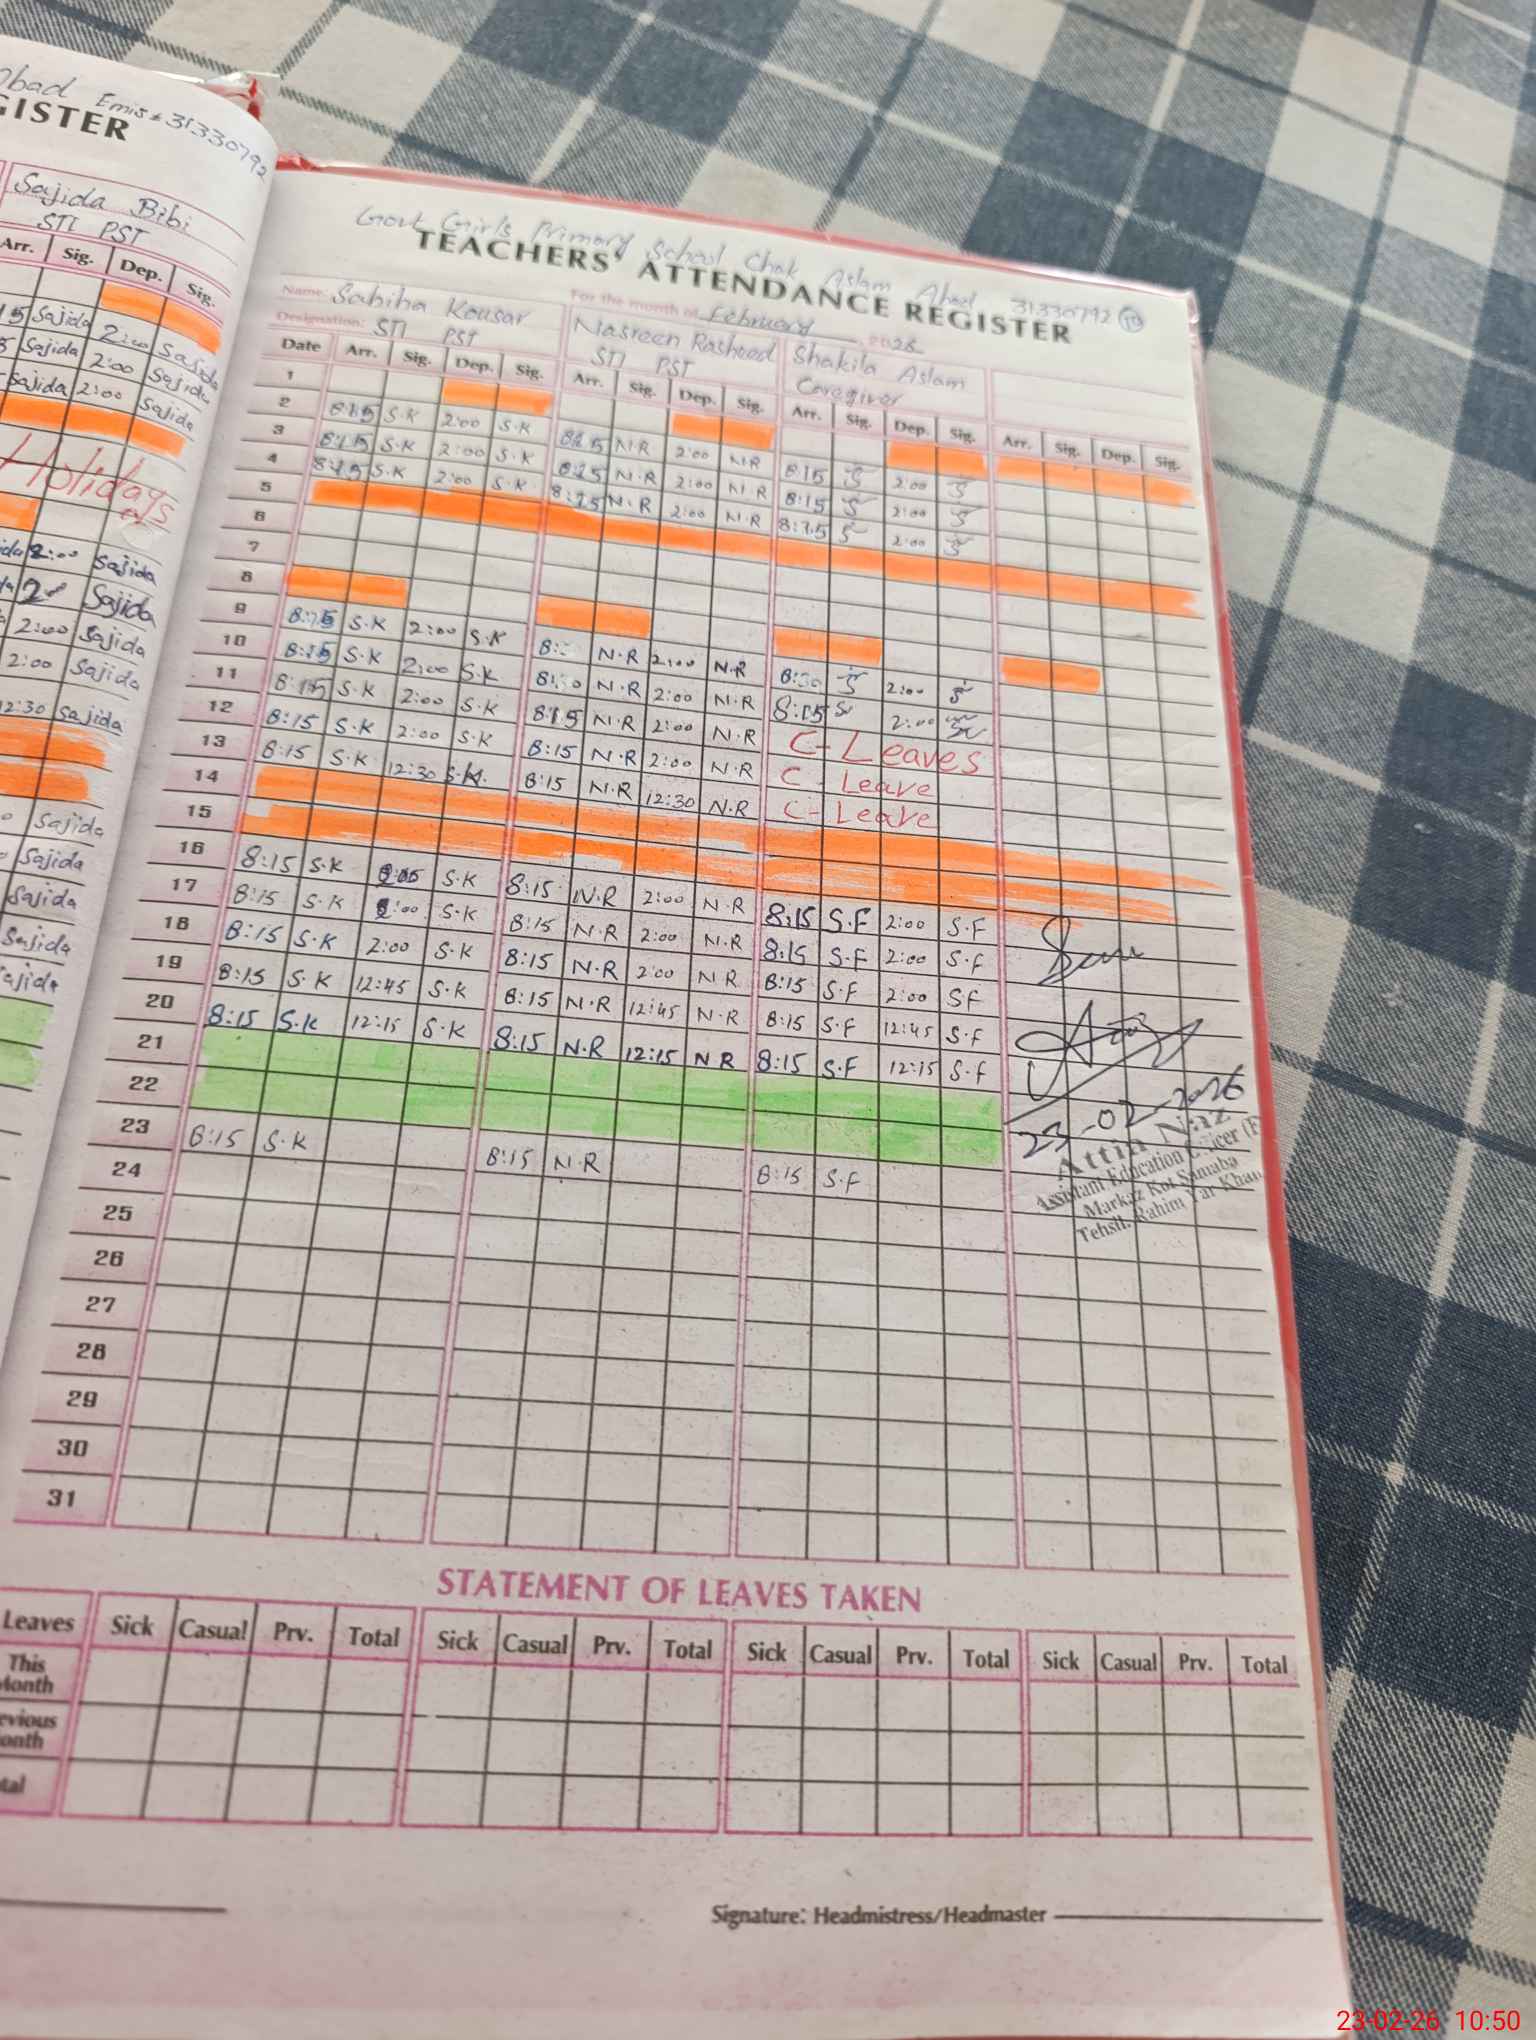 Emis # 31330792
GISTER
Sajida Bibi
STI PST
Arr. Sig. Dep. Sig.
Sajida 2:00 Sajida
Sajida 2:00 Sajida
Sajida 2:00 Sajida
Holidays
2:00 Sajida
Sajida
2:00 Sajida
2:00 Sajida
12:30 Sajida
Sajida
Sajida
Sajida
Sajida
Sajida
Govt Girls Primary School Chak Aslam Abad 31330792
TEACHERS' ATTENDANCE REGISTER
Name: Sabiha Kousar For the month of February 2026
Designation: STI PST Nasreen Rasheed STI PST Shakila Aslam Caregiver
Date Arr. Sig. Dep. Sig. Arr. Sig. Dep. Sig. Arr. Sig. Dep. Sig. Arr. Sig. Dep. Sig.
1
2 8:15 S.K 2:00 S.K 8:15 N.R 2:00 N.R 8:15 2:00
3 8:15 S.K 2:00 S.K 8:15 N.R 2:00 N.R 8:15 2:00
4 8:15 S.K 2:00 S.K 8:15 N.R 2:00 N.R 8:15 2:00
5
6
7
8
9 8:15 S.K 2:00 S.K N.R 2:00 N.R 8:30 2:00
10 8:15 S.K 2:00 S.K N.R 2:00 N.R 8:15 2:00
11 8:15 S.K 2:00 S.K 8:15 N.R 2:00 N.R C-Leaves
12 8:15 S.K 2:00 S.K 8:15 N.R 2:00 N.R C-Leave
13 8:15 S.K 12:30 S.K 8:15 N.R 12:30 N.R C-Leave
14
15
16 8:15 S.K S.K 8:15 N.R 2:00 N.R 8:15 S.F 2:00 S.F
17 8:15 S.K 2:00 S.K 8:15 N.R 2:00 N.R 8:15 S.F 2:00 S.F
18 8:15 S.K 2:00 S.K 8:15 N.R 2:00 N.R 8:15 S.F 2:00 SF
19 8:15 S.K 12:45 S.K 8:15 N.R 12:45 N.R 8:15 S.F 12:45 S.F
20 8:15 S.K 12:15 S.K 8:15 N.R 12:15 N R 8:15 S.F 12:15 S.F
21
22
23 8:15 S.K 8:15 N.R 8:15 S.F
24
25
26
27
28
29
30
31
23-02-2026
Attia Naz
Assistant Education Officer (F
Markaz Kot Samaba
Tehsil. Rahim Yar Khan
STATEMENT OF LEAVES TAKEN
Leaves Sick Casual Prv. Total Sick Casual Prv. Total Sick Casual Prv. Total Sick Casual Prv. Total
This
Month
evious
onth
tal
Signature: Headmistress/Headmaster
23-02-26 10:50